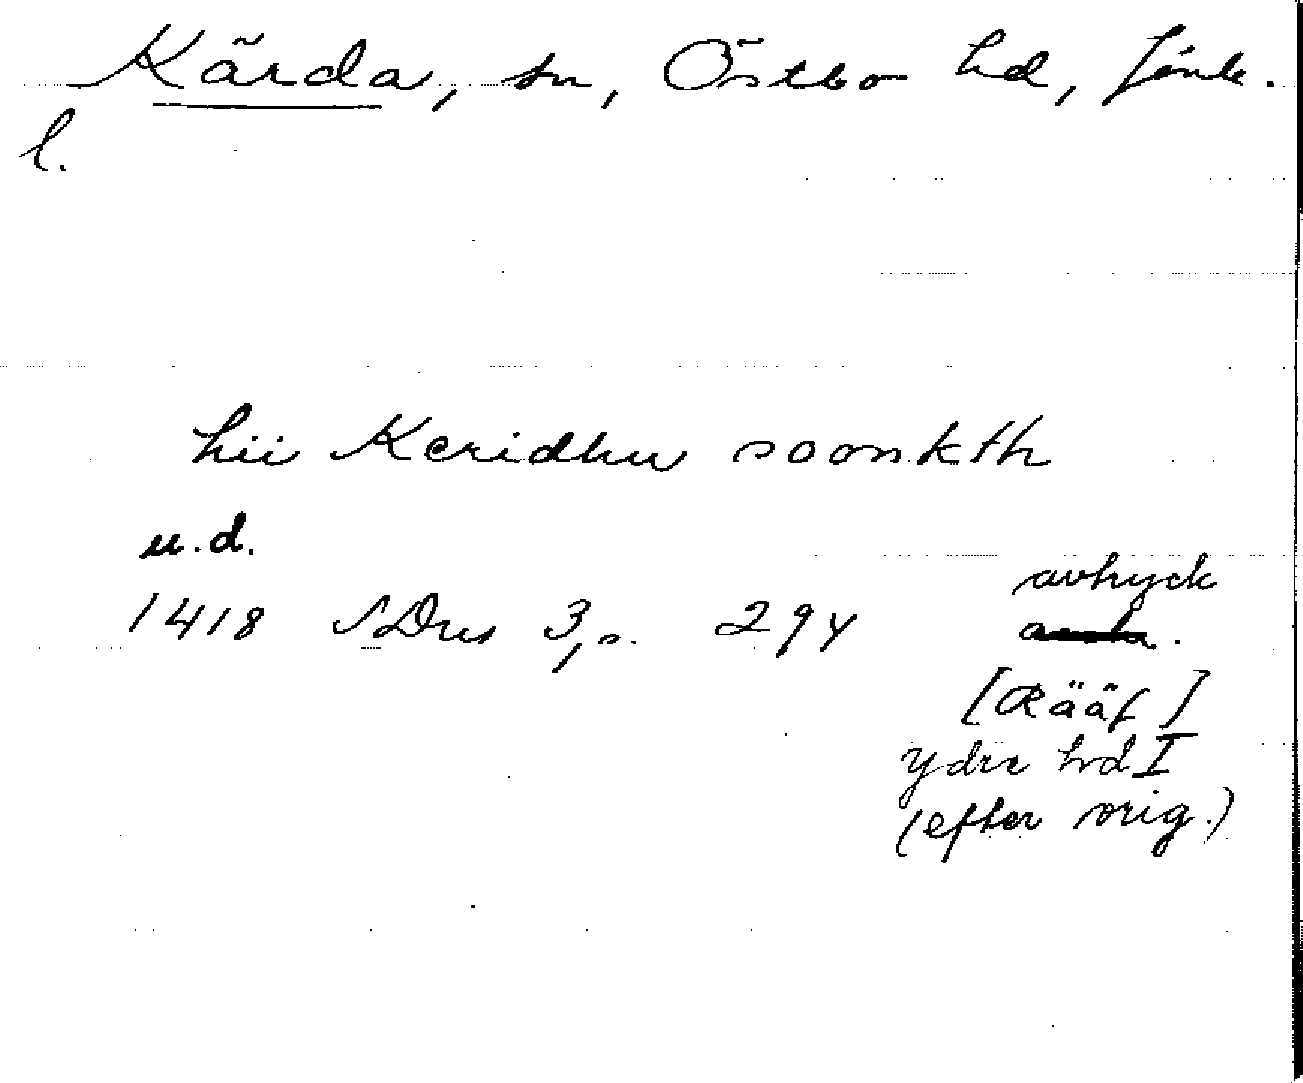 Kärda, sn, Östbo hd, Jönk.
l.
hii Keridhu soonkth
u.d.
1418 SDns 3, s. 294
avtryck
[Rääf]
Ydre hrd I
(efter orig.)